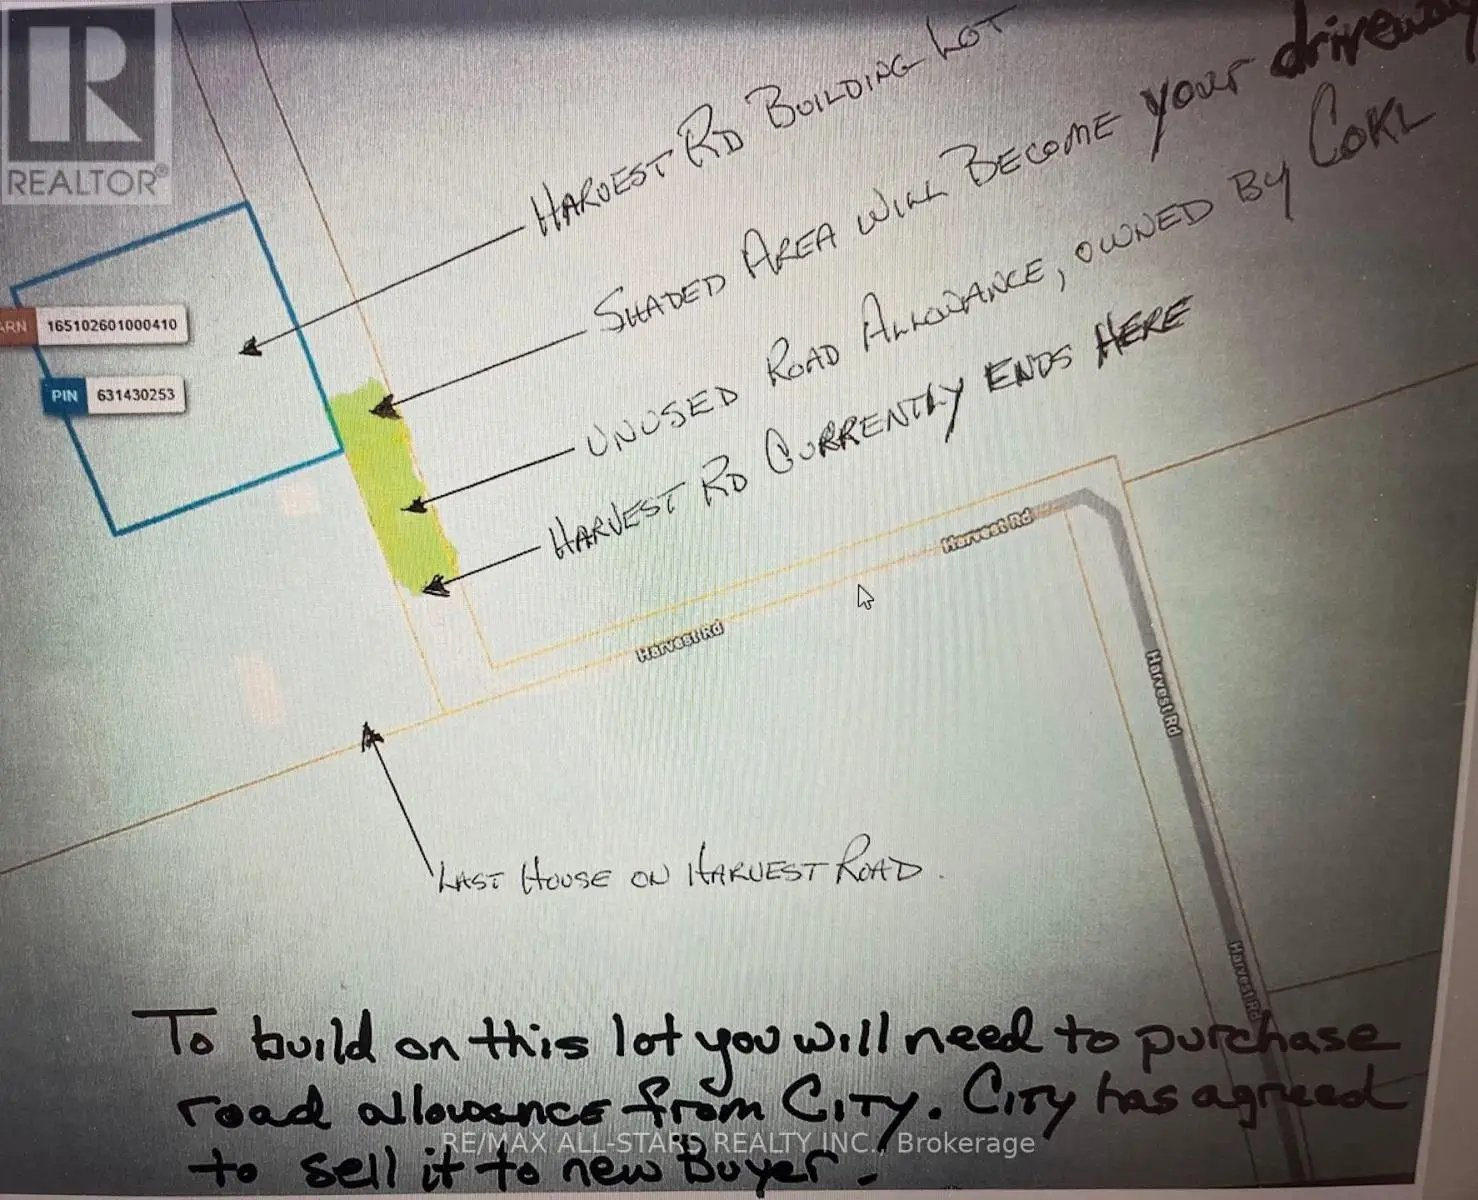 REALTOR®
HARVEST RD BUILDING LOT
SHADED AREA WILL BECOME your driveway
UNUSED ROAD ALLOWANCE, OWNED BY COKL
HARVEST RD CURRENTLY ENDS HERE
ARN 165102601000410
PIN 631430253
Harvest Rd
Harvest Rd
Harvest Rd
Harvest Rd
LAST HOUSE ON HARVEST ROAD.
To build on this lot you will need to purchase
road allowance from CITY. CITY has agreed
to sell it to new Buyer.
RE/MAX ALL-STARS REALTY INC., Brokerage